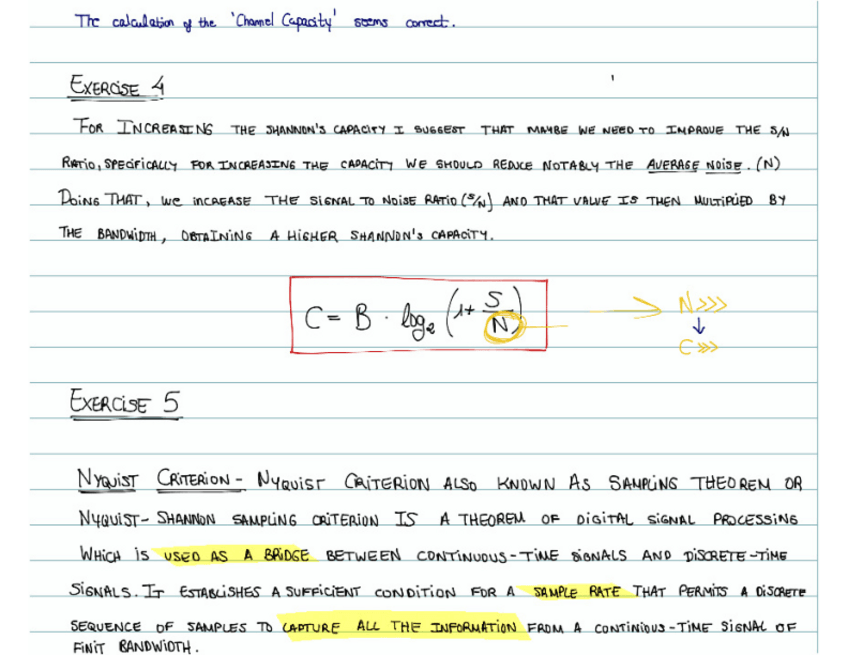 The calculation of the 'Channel Capacity' seems correct.
EXERCISE 4
FOR INCREASING THE SHANNON'S CAPACITY I SUGGEST THAT MAYBE WE NEED TO IMPROVE THE S/N
RATIO, SPECIFICALLY FOR INCREASING THE CAPACITY WE SHOULD REDUCE NOTABLY THE AVERAGE NOISE. (N)
DOING THAT, WE INCREASE THE SIGNAL TO NOISE RATIO (S/N) AND THAT VALUE IS THEN MULTIPLIED BY
THE BANDWIDTH, OBTAINING A HIGHER SHANNON'S CAPACITY.
C = B · log₂ (1+ S/N) → N>>>
↓
C>>>
EXERCISE 5
NYQUIST CRITERION - NYQUIST CRITERION ALSO KNOWN AS SAMPLING THEOREM OR
NYQUIST-SHANNON SAMPLING CRITERION IS A THEOREM OF DIGITAL SIGNAL PROCESSING
WHICH IS USED AS A BRIDGE BETWEEN CONTINUOUS-TIME SIGNALS AND DISCRETE-TIME
SIGNALS. IT ESTABLISHES A SUFFICIENT CONDITION FOR A SAMPLE RATE THAT PERMITS A DISCRETE
SEQUENCE OF SAMPLES TO CAPTURE ALL THE INFORMATION FROM A CONTINIOUS-TIME SIGNAL OF
FINIT BANDWIDTH.